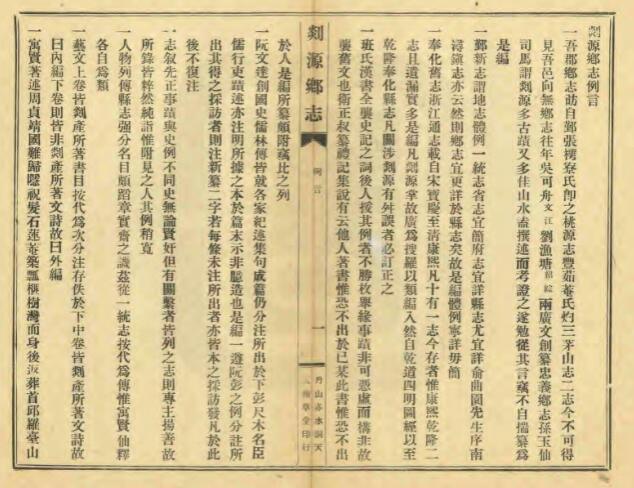 剡源鄉志例言
一吾郡鄉志昉自鄞張樗寮氏卽之桃源志豐茹菴氏灼三茅山志二志今不可得
見吾邑向無鄉志往年吳可舟文江劉漁塘紹綜兩廣文創纂忠義鄉志孫玉仙
司馬謂剡源多古蹟又多佳山水盍撰述而考證之遂勉從其言竊不自揣纂爲
是編
一鄞新志謂地志體例一統志省志宜簡府志宜詳縣志尤宜詳俞曲園先生序南
潯鎭志亦云然則鄉志宜更詳於縣志矣故是編體例寧詳毋簡
一奉化舊志浙江通志載自宋寶慶至清康熙凡十有一志今存者惟康熙乾隆二
志且遺漏實多是編凡剡源掌故廣爲搜羅以類編入然自乾道四明圖經以至
乾隆奉化縣志凡關涉剡源有舛誤者必訂正之
一班氏漢書全襲史記之詞後人援其例者不勝枚舉緣事蹟非可憑虛而構非故
襲舊文也衛正叔纂禮記集說有云他人著書惟恐不出於己某此書惟恐不出
剡源鄉志
例言
一
丹山赤水洞天
於人是編所纂頗附竊比之列
一阮文達創國史儒林傳皆就各家紀述集句成篇仍分注所出於下彭尺木名臣
儒行吏蹟述亦注明所據之本於篇末示非臆造也是編一遵阮彭之例分註所
出其得之採訪者則注新纂二字若每條未注所出者亦皆本之採訪發凡於此
後不復注
一志敘先正事蹟與史例不同史無論賢奸但有關繫者皆列之志則專主揚善故
所錄皆粹然純詣惟附見之人其例稍寬
一人物列傳縣志強分名目頗蹈章實齋之譏茲從一統志按代爲傳惟寓賢仙釋
各自爲類
一藝文上卷皆剡產所著書目按代爲次分注存佚於下中卷皆剡產所著文詩故
曰內編下卷則皆非剡產所著文詩故曰外編
一寓賢著述周貞靖國難歸隱祝髮石蓮菴築瓢榧樹灣而身後返葬首邱羅臺山